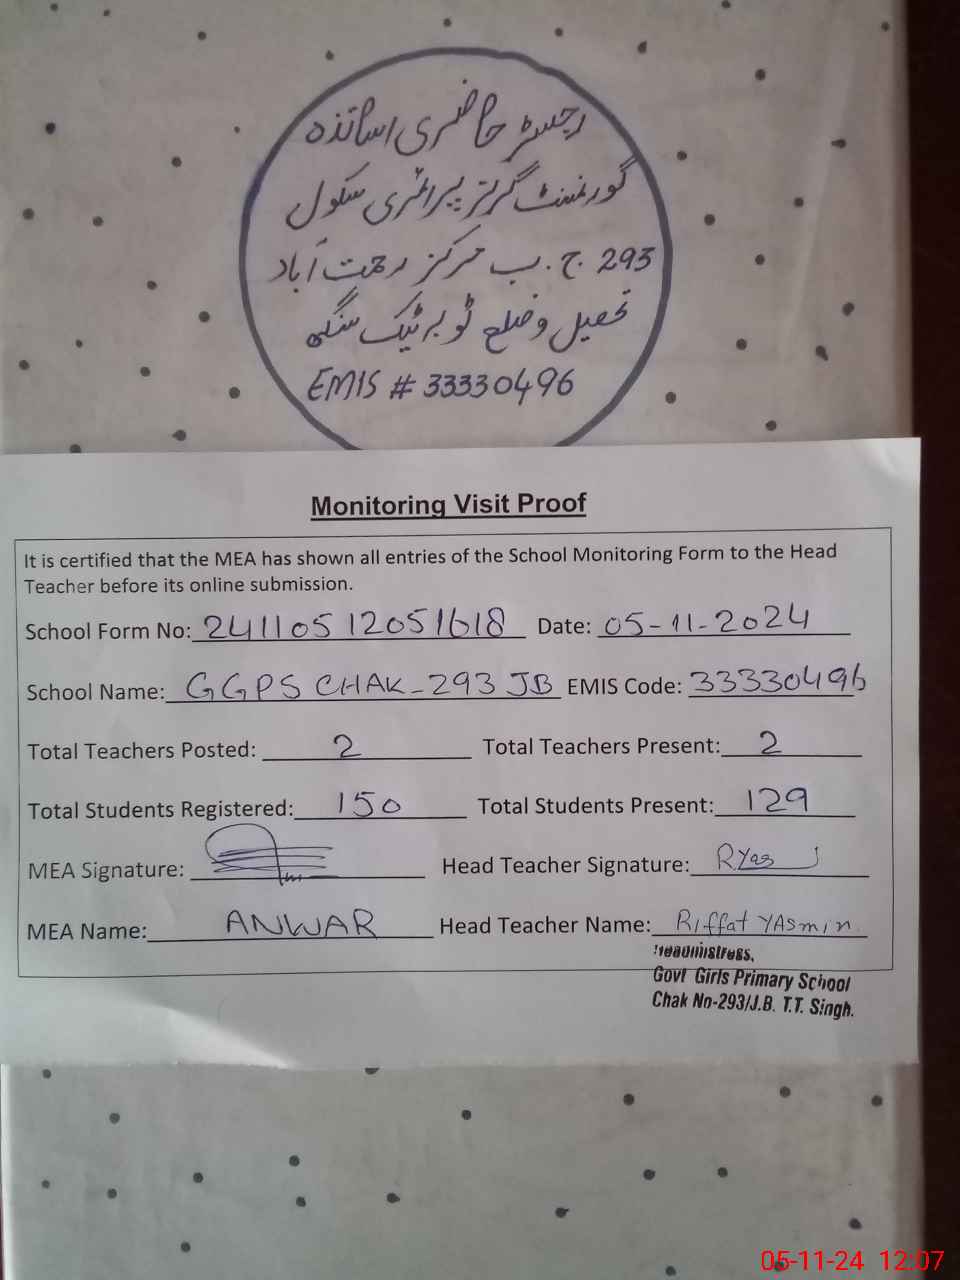 رجسٹر حاضری اساتذہ
گورنمنٹ گرلز پرائمری سکول
293 ج.ب مرکز رحمت آباد
تحصیل و ضلع ٹوبہ ٹیک سنگھ
EMIS # 33330496
Monitoring Visit Proof
It is certified that the MEA has shown all entries of the School Monitoring Form to the Head
Teacher before its online submission.
School Form No: 24110512051618 Date: 05-11-2024
School Name: GGPS CHAK-293 JB EMIS Code: 33330496
Total Teachers Posted: 2 Total Teachers Present: 2
Total Students Registered: 150 Total Students Present: 129
MEA Signature: Head Teacher Signature: RYas
MEA Name: ANWAR Head Teacher Name: Riffat YAsmin
Headmistress,
Govt Girls Primary School
Chak No-293/J.B. T.T. Singh.
05-11-24 12:07